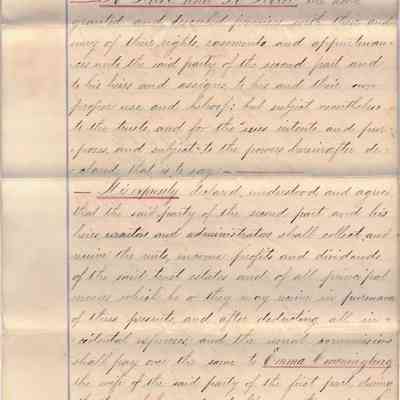 To Have and To Hold the above
granted and described premises with their and
every of their rights, easements, and appurtenan-
ces unto the said party of the second part and
to his heirs and assigns, to his and their own
proper use and behoof; but subject nevertheless
to the trusts, and for the uses intents, and pur-
poses, and subject to the powers hereinafter de-
clared, that is to say:
— It is expressly declared, understood and agreed
that the said party of the second part and his
heirs, executors and administrators shall collect, and
receive the rents, income profits and dividends
of the said trust estates and of all principal
moneys which he or they may receive in pursuance
of these presents, and after deducting all in-
cidental expenses, and the usual commissions
shall pay over the same to Emma
the wife of the said party of the first part during